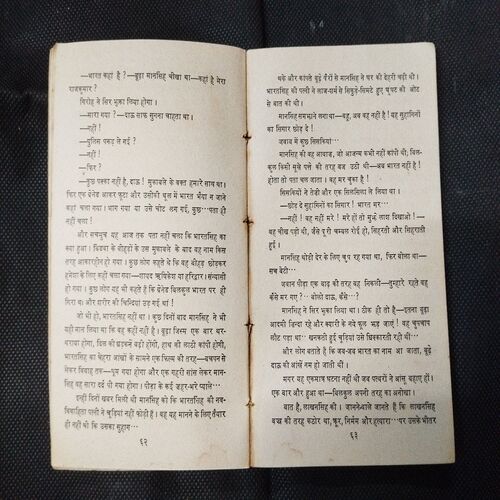 —भारत कहां है ?—बूढ़ा मानसिंह चीखा था—कहां है मेरा
राजकुमार ?
गिरोह ने सिर भुका लिया होगा।
—मारा गया ?—दाऊ साफ सुनना चाहता था।
—नहीं !
—पुलिस पकड़ ले गई ?
—नहीं !
—फिर ?
—कुछ पक्का नहीं है, दाऊ ! मुकाबले के वक्त हमारे साथ था।
फिर एक ग्रेनेड आकर फूटा और उसीकी धूल में भारत भैया न जाने
कहां चला गया। भाग गया या उसे चोट लग गई, कुछ⋯पता ही
नहीं चला !
और सचमुच यह आज तक पता नहीं चला कि भारतसिंह का
क्या हुआ। भिडवा के बीहड़ों के उस मुकाबले के बाद वह नाम किस
तरह आकारहीन हो गया। कुछ लोग कहते हैं कि वह बीहड़ छोड़कर
हमेशा के लिए कहीं चला गया—शायद ऋषिकेश या हरिद्वार। संन्यासी
हो गया। कुछ लोग यह भी कहते हैं कि ग्रेनेड बिलकुल भारत पर ही
गिरा था और शरीर की चिन्दियां उड़ गई थीं !
जो भी हो, भारतसिंह नहीं था। कुछ दिनों बाद मानसिंह ने भी
यही मान लिया था कि वह कहीं नहीं है। बूढ़ा जिस्म एक बार थर-
थराया होगा, दिल की धड़कनें बढ़ी होंगी, हाथ की लाठी कांपी होगी,
भारतसिंह का चेहरा आंखों के सामने एक फिल्म की तरह—बचपन से
लेकर विवाह तक—घूम गया होगा और एक गहरी सांस लेकर मान-
सिंह वह सारा दर्द पी गया होगा। पीड़ा के कई जहर-भरे प्याले⋯
इन्हीं दिनों खबर मिली थी मानसिंह को कि भारतसिंह की नव-
विवाहिता पत्नी ने चूड़ियां नहीं फोड़ी हैं। वह यह मानने के लिए तैयार
ही नहीं थी कि उसका सुहाग⋯
६२
थके और कांपते बूढ़े पैरों से मानसिंह ने घर की देहरी चढ़ी थी।
भारतसिंह की पत्नी ने लाज-शर्म से सिकुड़े-सिमटे हुए घूंघट की ओट
से बात की थी।
मानसिंह समझाने लगा था—बहू, अब वह नहीं है ! यह सुहागिनों
का सिंगार छोड़ दे !
जवाब में कुछ सिसकियां⋯
मानसिंह की वह आवाज, जो आजन्म कभी नहीं कांपी थी; बिल-
कुल किसी सूखे पत्ते की तरह बज उठी थी—अब भारत नहीं है !
होता तो पता चल जाता। वह मर चुका है !
सिसकियों ने तेजी और एक सिलसिला ले लिया था।
—छोड़ दे सुहागिनों का सिंगार ! भारत मर⋯
—नहीं ! वह नहीं मरे ! मरे हों तो मुझे लाश दिखाओ !—
वह चीख पड़ी थी, जैसे पूरी चम्बल रोई हो, सिहरती और सिहराती
हुई।
मानसिंह थोड़ी देर के लिए चुप रह गया था, फिर बोला था—
सच बेटी⋯
जवान पीड़ा एक बाढ़ की तरह बह निकली—तुम्हारे रहते वह
कैसे मर गए ?⋯बोलो दाऊ, कैसे⋯?
मानसिंह ने सिर भुका लिया था। ठीक ही तो है—इतना बूढ़ा
आदमी जिन्दा रहे और क्यारी के नये फूल झड़ जाएं ! वह चुपचाप
लौट पड़ा था⋯खनकती हुई चूड़ियां उसे धिक्कारती रही थीं⋯
और लोग बताते हैं कि जब-जब भारत का नाम आ जाता, बूढ़े
दाऊ की आंखें नम हो जाती थीं।
मगर यह एकमात्र घटना नहीं थी जब पत्थरों ने आंसू बहाए हों।
एक बार और हुआ था—बिलकुल अपनी तरह का अनोखा।
बात है, लाखनसिंह की। जाननेवाले जानते हैं कि लाखनसिंह
वज्र की तरह कठोर था; क्रूर, निर्मम और हत्यारा⋯पर उसके भीतर
६३